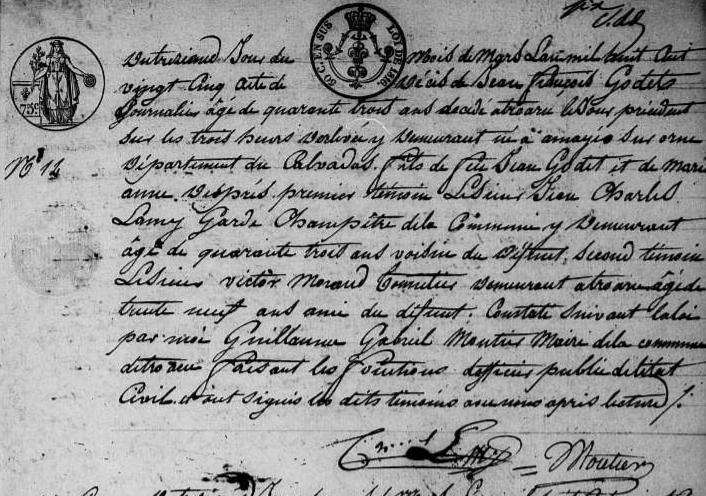 Du treiziend Jour du Mois de Mars Lan mil huit Cent
vingt Cinq acte de Décès de Jean François Godets
Journalié âgé de quarante trois ans decidé atroarn le Jour précédent
sur les trois heurs Derlevée y Demeurant né à amayée sur orne
Département du Calvados. fils de feu Jean Godet et de Marie
anne Desprès. premier témoin Le Sieur Jean Charles
Lamy Garde Champêtre dela Commune y Demeurant
âgé de quarante trois ans voisin du Défunt, Second témoin
Le Sieur victor Morand Demeurant atroarn âgé de
trente neuf ans amie du défunt. Constaté Suivant la loi
par moi Guillaume Gabriel Moutier Maire dela commune
de troarn faisant les fonctions dofficier public de létat
Civil. et ont signés les dits témoins avec nous après lecture /.
Lamy = Moutier
N° 12
75c
50 C. EN SUS
LOI DE 1816